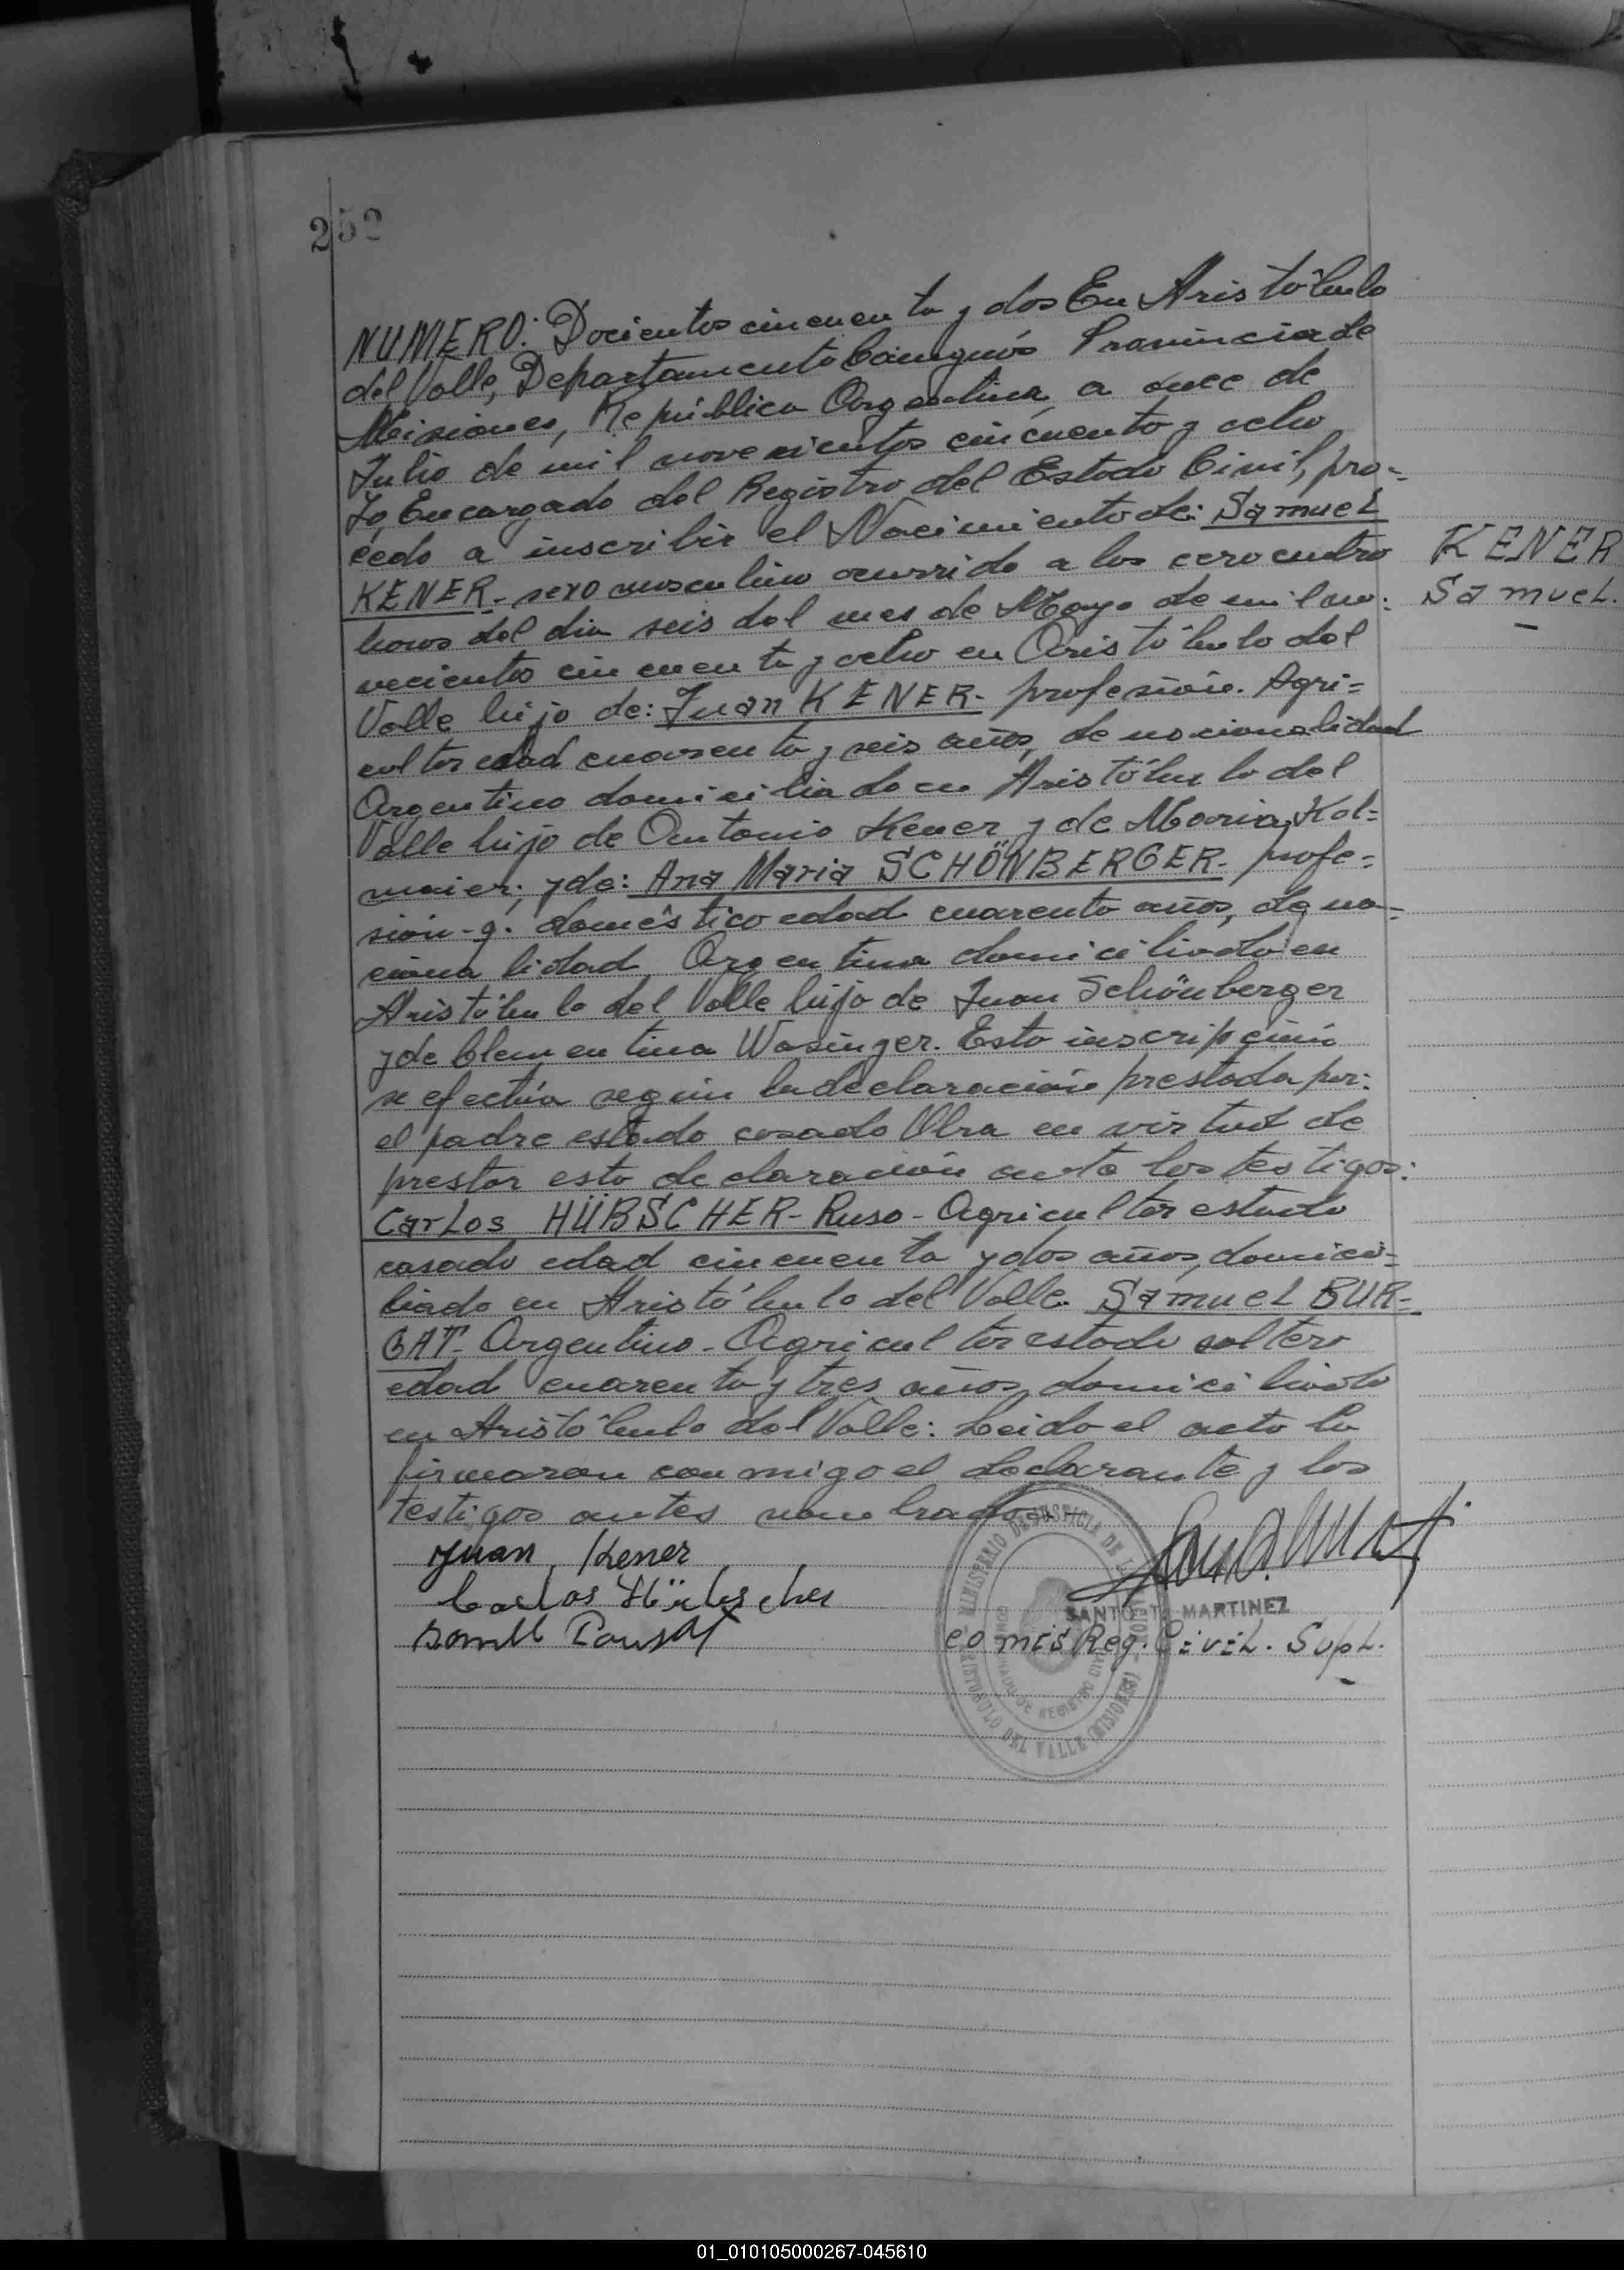 252
NUMERO: Docientos cincuenta y dos En Aristóbulo
del Valle, Departamento Cainguás Provincia de
Misiones, República Argentina, a once de
Julio de mil novecientos cincuenta y ocho
Yo, Encargado del Registro del Estado Civil, pro-
cedo a inscribir el Nacimiento de: Samuel
KENER
KENER- sexo masculino ocurrido a los cero cuatro
Samuel.
horas del dia seis del mes de Mayo de mil no-
vecientos cincuenta y ocho en Aristóbulo del
Valle hijo de: Juan KENER- profesión. Agri=
cultor edad cuarenta y seis años, de nacionalidad
Argentino domiciliado en Aristóbulo del
Valle hijo de Antonio Kener y de Maria Kol=
maier; y de: Ana Maria SCHÖNBERGER- profe=
sión-q. doméstico edad cuarenta años, de na-
cionalidad Argentina domiciliado en
Aristóbulo del Valle hijo de Juan Schönberger
y de Clementina Wasinger. Esta inscripción
se efectúa según la declaración prestada por:
el padre estado casado Obra en virtud de
prestar esta declaración ante los testigos:
Carlos HÜBSCHER- Ruso- Agricultor estado
casado edad cincuenta y dos años, domici-
liado en Aristóbulo del Valle. Samuel BUR-
GAT- Argentino- Agricultor estado soltero
edad cuarenta y tres años, domiciliado
en Aristóbulo del Valle: Leido el acta la
firmaron conmigo el declarante y los
testigos antes nombrados.
Juan Kener
Carlos Hübscher
SANTO T. MARTINEZ
Comis Reg. Civil. Supl.
MINISTERIO DE JUSTICIA DE LA NACION
REGISTRO CIVIL
ARISTOBULO DEL VALLE (MISIONES)
01_010105000267-045610